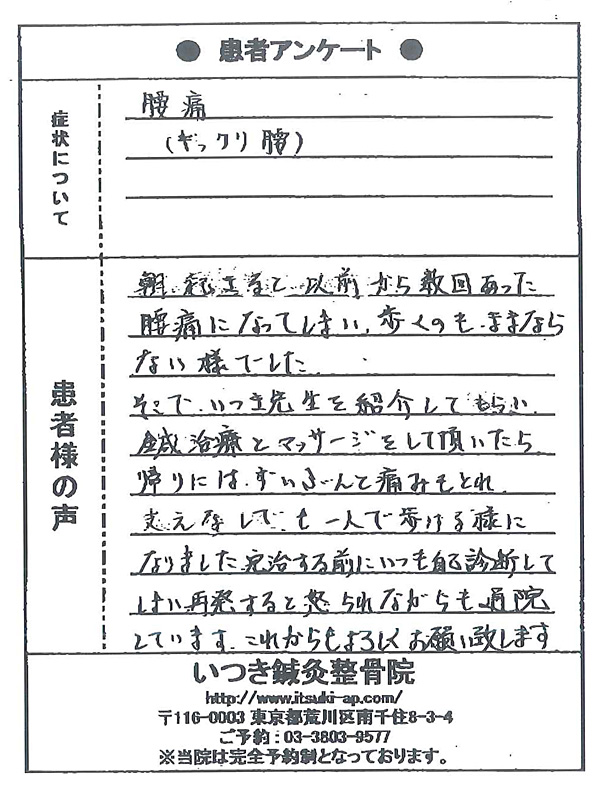 ● 患者アンケート ●
症状について
腰痛
(ぎっくり腰)
患者様の声
朝、起きると以前から数回あった
腰痛になってしまい、歩くのもままなら
ない様でした。
そこで、いつき先生を紹介してもらい、
鍼治療とマッサージをして頂いたら
帰りには、ずいぶんと痛みもとれ、
支えなしでも一人で歩ける様に
なりました 完治する前にいつも自己診断して
しまい再発すると怒られながらも通院
しています。これからもよろしくお願い致します
いつき鍼灸整骨院
http://www.itsuki-ap.com/
〒116-0003 東京都荒川区南千住8-3-4
ご予約：03-3803-9577
※当院は完全予約制となっております。